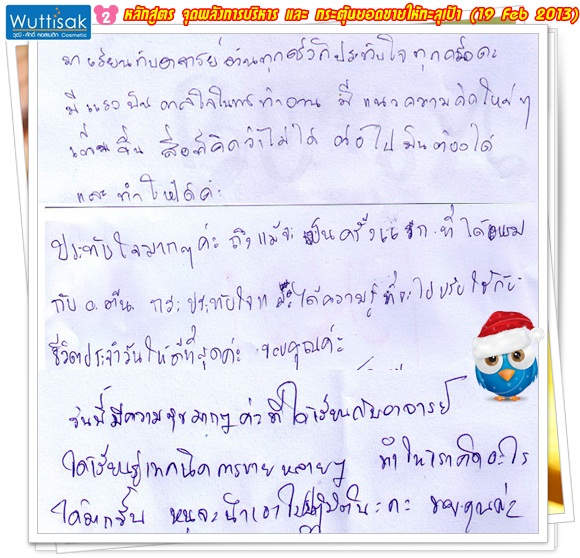 Wuttisak
วุฒิ-ศักดิ์ คอสเมติก Cosmetic
2 หลักสูตร จุดพลังการบริหาร และ กระตุ้นยอดขายให้ทะลุเป้า (19 Feb 2013)
มาเรียนกับอาจารย์ ทุกครั้งก็ประทับใจทุกครั้งค่ะ
มีแรงบันดาลใจในการทำงาน มีแนวความคิดใหม่ๆ
เพิ่มขึ้น สิ่งที่คิดว่าไม่ได้ ต่อไปมันต้องได้
และทำให้ได้ค่ะ
ประทับใจมากๆค่ะ ถึงแม้จะเป็นครั้งแรก ที่ได้อบรม
กับ อ. ประทับใจ ได้ความรู้ที่จะไปปรับใช้กับ
ชีวิตประจำวันให้ดีที่สุดค่ะ ขอบคุณค่ะ
วันนี้มีความสุขมากๆ ค่ะ ที่ได้เรียนกับอาจารย์
ได้เรียนรู้เทคนิคการขายหลายๆ ทำให้เราคิดอะไร
ได้มากขึ้น หนูจะนำเอาไปปฏิบัตินะคะ ขอบคุณค่ะ